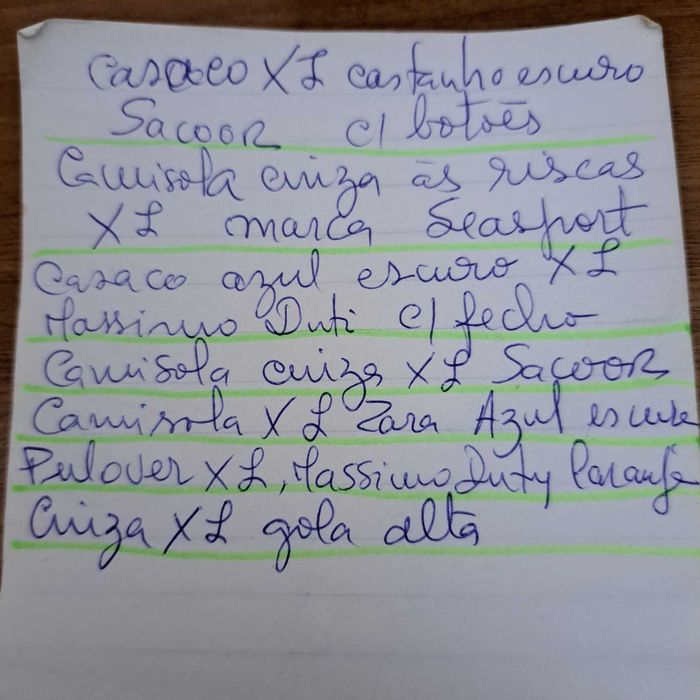 Casaco XL castanho escuro
Sacoor c/ botões
Camisola cinza às riscas
XL marca Seasport
Casaco azul escuro XL
Massimo Duti c/ fecho
Camisola cinza XL Sacoor
Camisola XL Zara Azul escura
Pulover XL, Massimo Duty laranja
Cinza XL gola alta